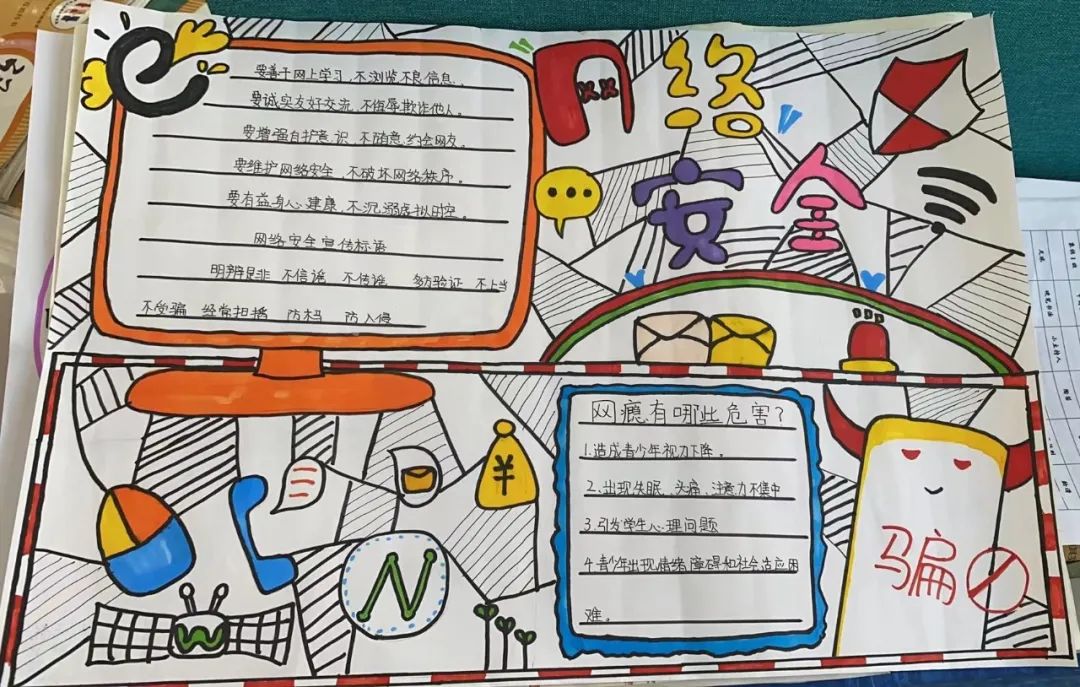 网络
安全
要善于网上学习,不浏览不良信息.
要诚实友好交流,不侮辱欺诈他人。
要增强自护意识,不随意约会网友。
要维护网络安全,不破坏网络秩序。
要有益身心健康,不沉溺虚拟时空。
网络安全宣传标语
明辨是非 不信谣 不传谣 多方验证 不上当
不受骗 经常扫描 防木马 防入侵
网瘾有哪些危害?
1.造成青少年视力下降。
2、出现失眠、头痛、注意力不集中
3.引发学生心理问题
4.青少年出现情绪障碍和社会适应困
难。
¥
N
W
骗